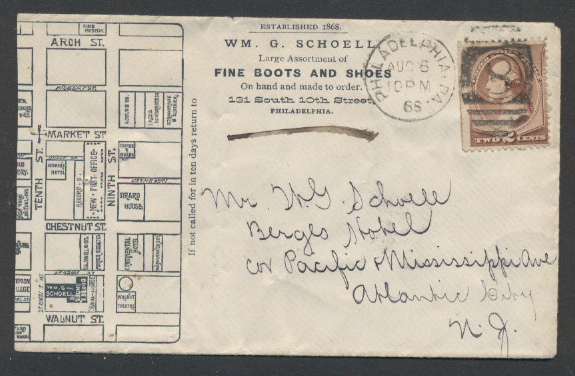 ESTABLISHED 1868.
WM. G. SCHOELL
Large Assortment of
FINE BOOTS AND SHOES
On hand and made to order.
131 South 10th Street,
PHILADELPHIA.
If not called for in ten days return to
PHILADELPHIA, PA.
AUG 6
10 PM
TWO 2 CENTS
Mr. WG. Schoell
Berges Hotel
cor Pacific & Mississippi Ave
Atlantic City
N. J.
ARCH ST.
MARKET ST.
TENTH ST.
NINTH ST.
NEW POST-OFFICE
GIRARD HOUSE
CHESTNUT ST.
CONTINENTAL HOTEL
WM. G.
SCHOELL
WALNUT ST.